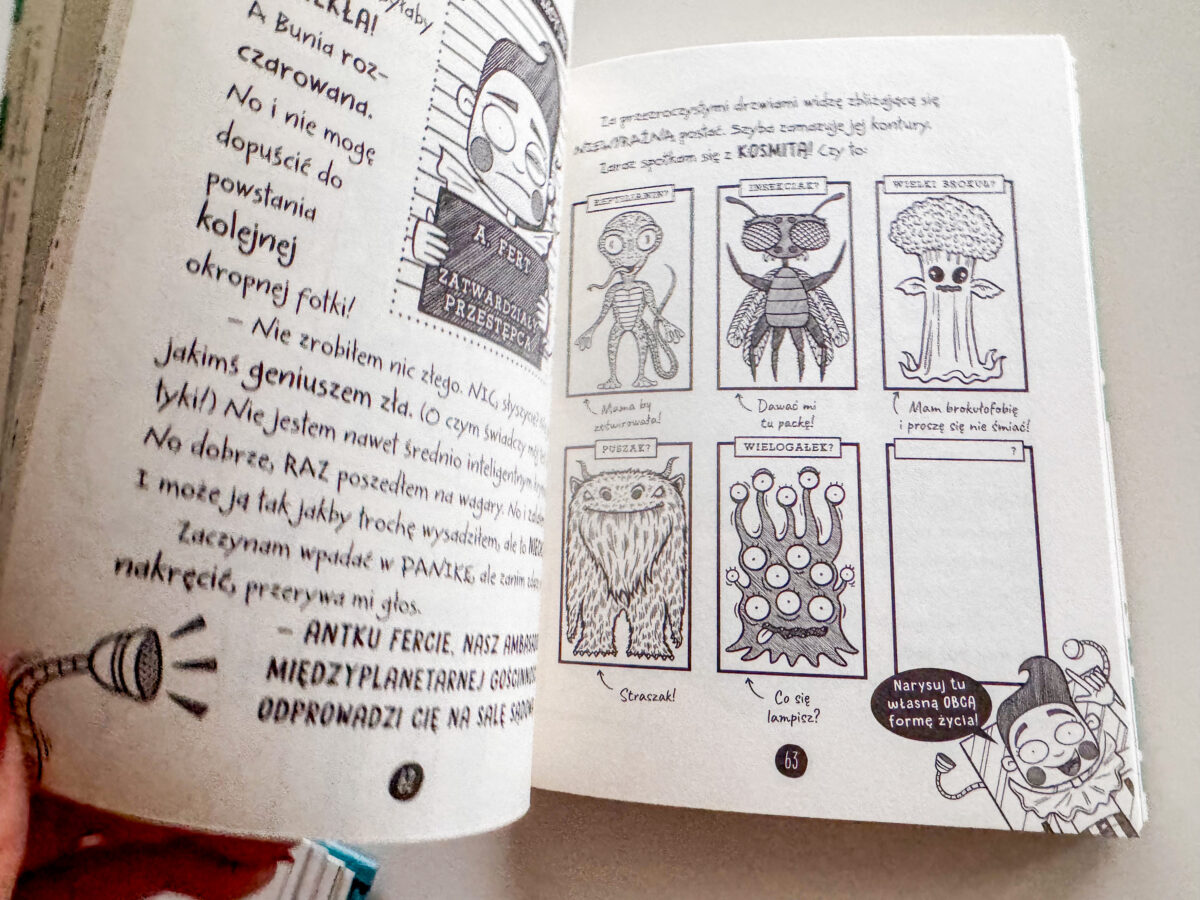 A Bunia roz-
czarowana.
No i nie mogę
dopuścić do
powstania
kolejnej
okropnej fotki!
A. FERT
ZATWARDZIAŁY
PRZESTĘPCA
– Nie zrobiłem nic złego. NIC, słyszycie?
jakimś geniuszem zła. (O czym świadczy mój
tyki!) Nie jestem nawet średnio inteligentnym
No dobrze, RAZ poszedłem na wagary. No i
I może ją tak jakby trochę wysadziłem, ale to
Zaczynam wpadać w PANIKĘ, ale zanim
nakręcić, przerywa mi głos.
– ANTKU FERCIE, NASZ
MIĘDZYPLANETARNEJ
ODPROWADZI CIĘ NA SALĘ
Za przezroczystymi drzwiami widzę zbliżającą się
NIEWYRAŹNĄ postać. Szyba zamazuje jej kontury.
Zaraz spotkam się z KOSMITĄ! Czy to:
REPTILIANIN?
INSEKCIAK?
WIELKI BROKUŁ?
Mama by
ześwirowała!
Dawać mi
tu packę!
Mam brokułofobię
i proszę się nie śmiać!
PUSZAK?
WIELOGAŁEK?
?
Straszak!
Co się
lampisz?
Narysuj tu
własną OBCĄ
formę życia!
63